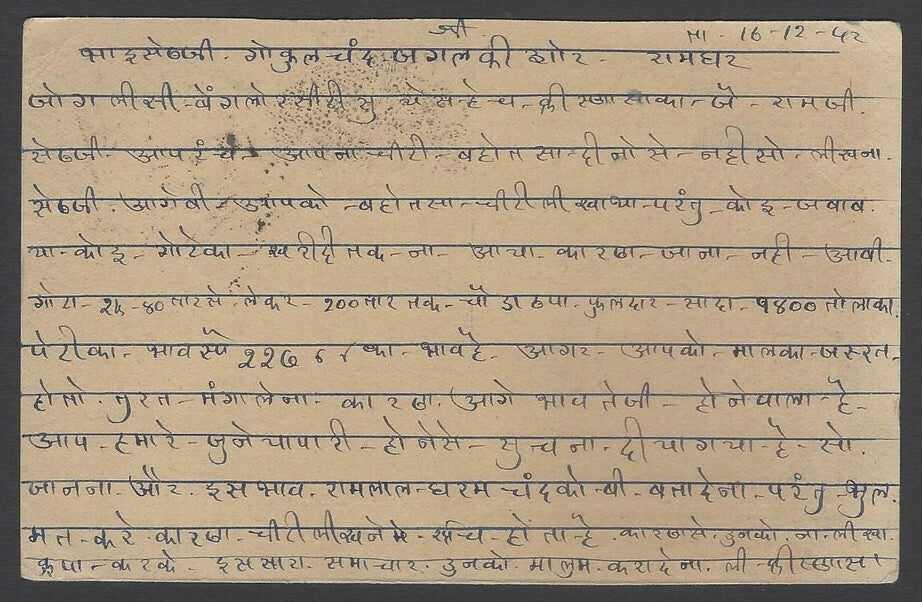 श्री
ता. 16-12-52
भाइसेठजी. गोकुलचंद जगलकीशोर - रामघर
जोग लीसी - बेंगलोरसीटी सु
का - जै - रामजी
सेठजी - आपरंच - आपना - चीटी - बहोतसा - दीनोसे - नहीसो - लीखना.
सेठजी . आगेबी - आपको - बहोतसा - चीटी लीखाथा - परंतु - कोइ - जबाब.
या - कोइ - गोटेका - खरीदी तक - ना - आया - कारण - जाना - नही - आवी.
गोटा - 40 तारसे लेकर - 200 तार तक - चौडा ठपा - फुलदार - सादा - १४०० तोलाका.
पेटीका - भाव रूपै का - भाव है. अगर - आपको - मालका - जरूरत -
होतो - तुरत - मंगालेना - कारण. आगे भाव तेजी - होनेवाला - है -
आप - हमारे - जुने यापारी - होनेसे - सुचना - दीयागया - है - सो.
जानना - और . इसभाव . रामलाल - धरमचंदको - बी - बतादेना - परंतु - भुल.
मत - करे - कारण - चीटी लीखनेमे - खर्च - होता - है . कारणसे . उनको . ना - लीखा.
क्रुपा - करके - इससारा . समाचार . उनको . मालुम . करादेना . ली -